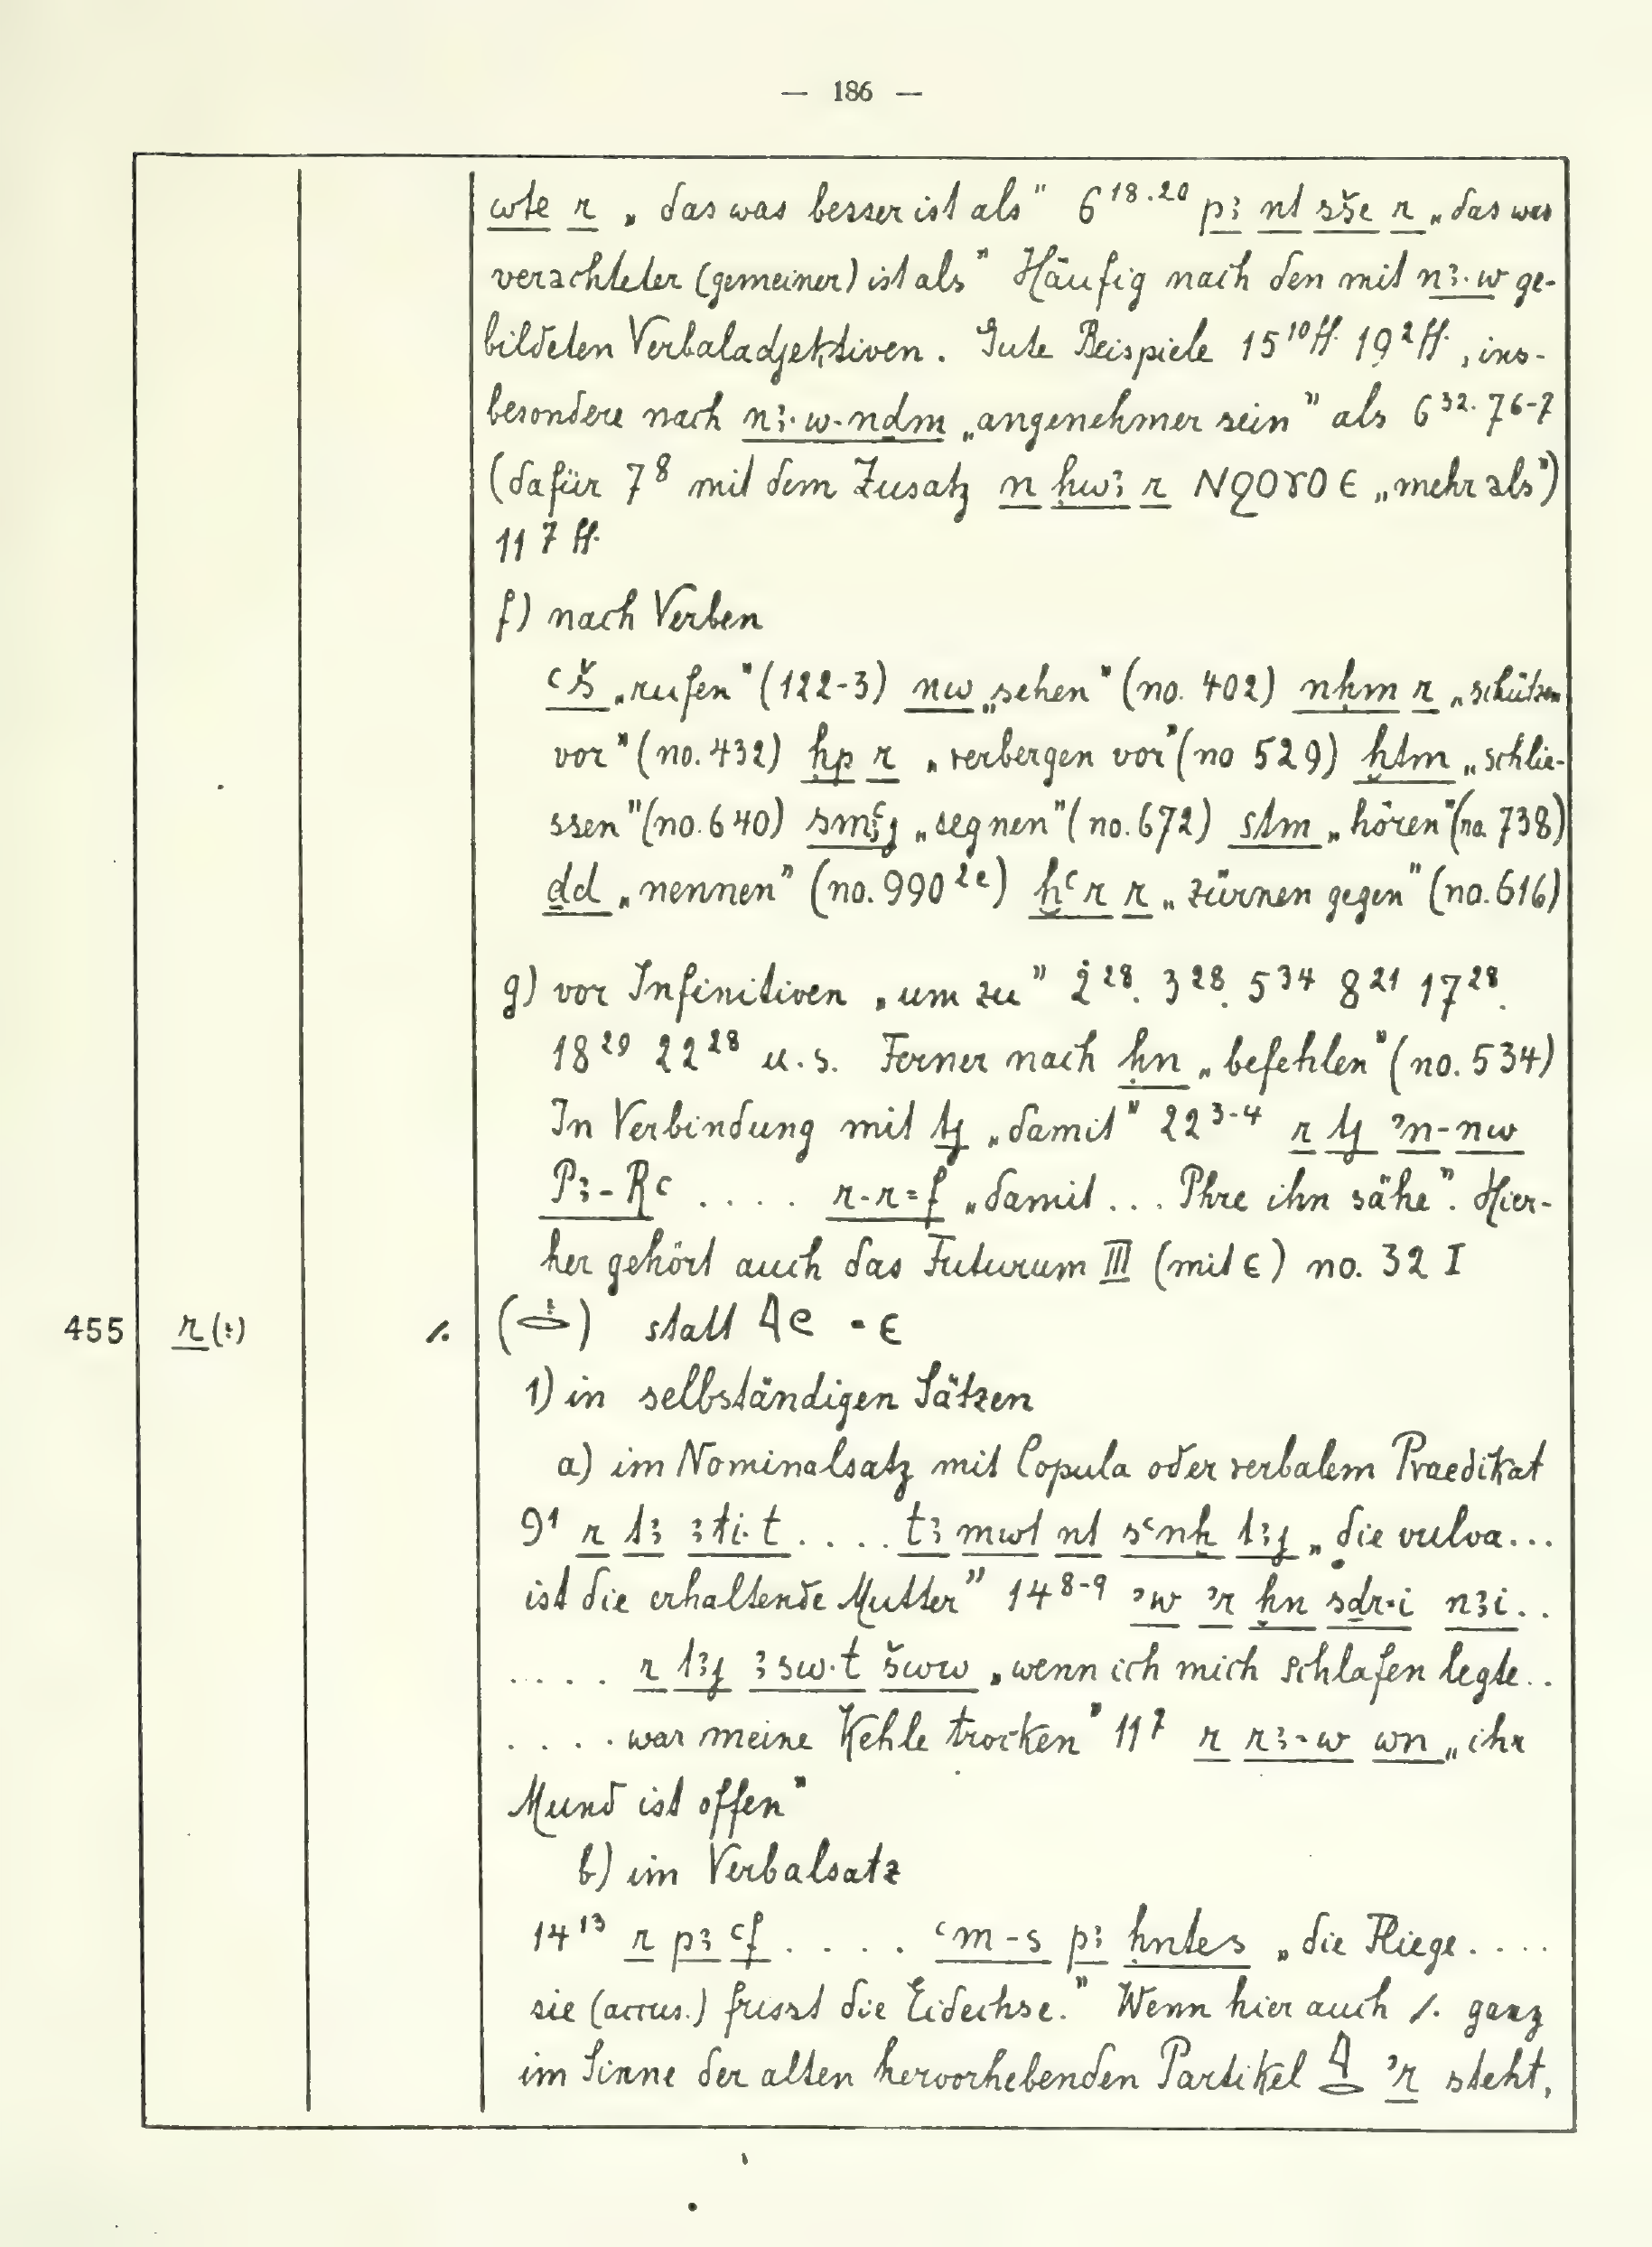 — 186 —
wte r „das was besser ist als" 6¹⁸·²⁰ pꜣ nt sše r „das was
verachteter (gemeiner) ist als" Häufig nach den mit nꜣ·w ge-
bildeten Verbaladjektiven. Gute Beispiele 15¹⁰ff. 19²ff., ins-
besondere nach nꜣ·w-nḏm „angenehmer sein" als 6³²· 7⁶⁻⁷
(dafür 7⁸ mit dem Zusatz n ḥwꜣ r ⲚϨⲞⲨⲞ Ⲉ „mehr als")
11⁷ff.
f) nach Verben
ꜥš „rufen" (122-3) nw „sehen" (no. 402) nḥm r „schützen
vor" (no. 432) ḥp r „verbergen vor" (no 529) ḫtm „schlie-
ssen" (no. 640) smꜥj „segnen" (no. 672) stm „hören" (no. 738)
ḏd „nennen" (no. 990²ᵉ) ḫꜥr r „zürnen gegen" (no. 616)
g) vor Infinitiven „um zu" 2²⁸. 3²⁸. 5³⁴ 8²¹ 17²⁸.
18²⁹ 22²⁸ u. s. Ferner nach ḥn „befehlen" (no. 534)
In Verbindung mit tj „damit" 22³⁻⁴ r tj ʾn-nw
Pꜣ-Rꜥ .... r-r=f „damit... Phre ihn sähe". Hier-
her gehört auch das Futurum III (mit ⲉ) no. 32 I
455 r(:) /. statt ⲉ
1) in selbständigen Sätzen
a) im Nominalsatz mit Copula oder verbalem Praedikat
9¹ r tꜣ ꜣti·t .... tꜣ mwt nt sꜥnḫ tꜣj „die vulva...
ist die erhaltende Mutter" 14⁸⁻⁹ ʾw ʾr ḫn sḏr·i nꜣi..
..... r tꜣj ꜣsw·t šww „wenn ich mich schlafen legte..
.... war meine Kehle trocken" 11⁷ r rꜣ-w wn „ihr
Mund ist offen"
b) im Verbalsatz
14¹³ r pꜣ ꜥf .... ꜥm-s pꜣ hntes „die Fliege....
sie (accus.) frisst die Eidechse." Wenn hier auch /. ganz
im Sinne der alten hervorhebenden Partikel 𓇋𓂋 ʾr steht,